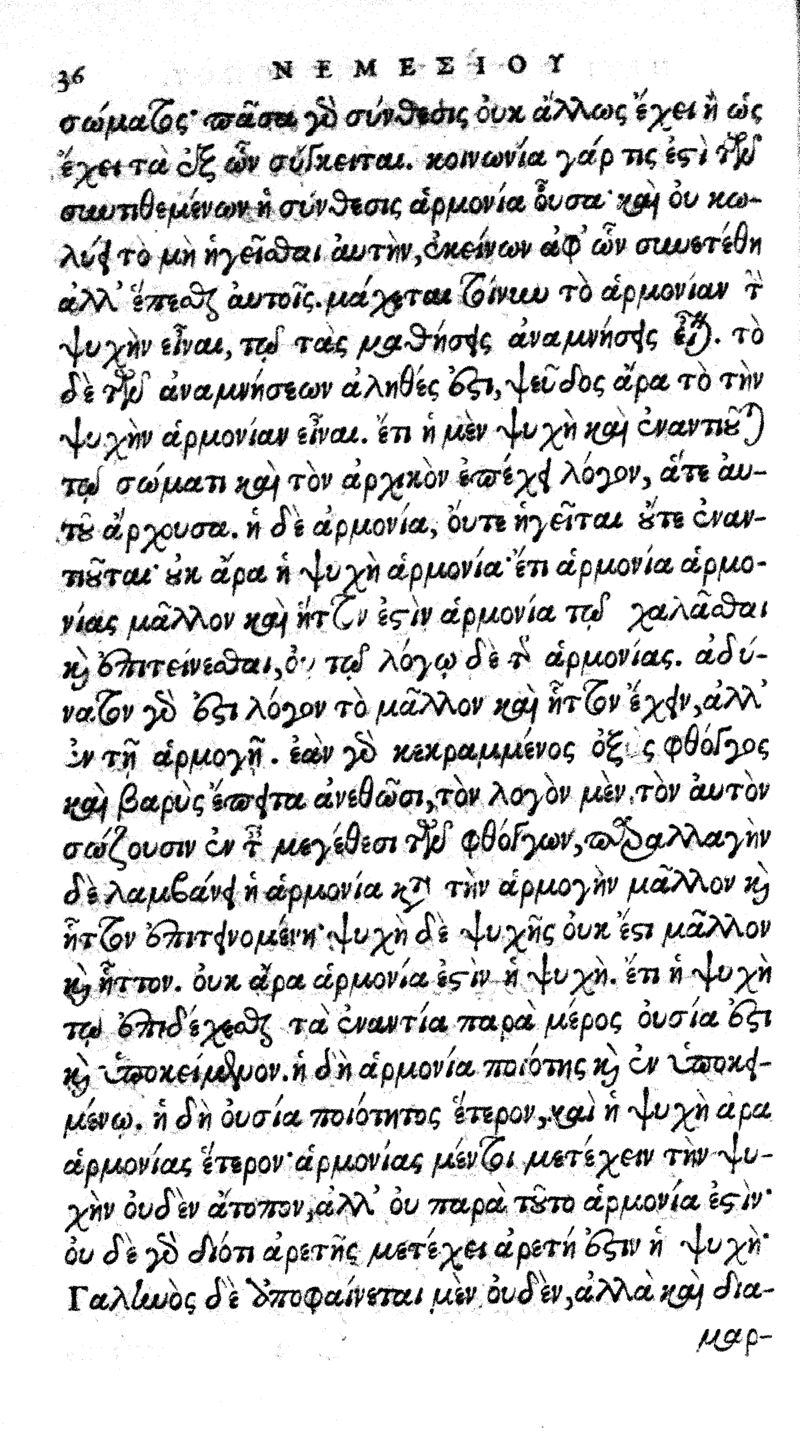 36 ΝΕΜΕΣΙΟΥ
σώματος· πᾶσα γὸ σύνθεσις ὀυκ ἄλλως ἔχει ἢ ὡς
ἔχει τὰ ἐξ ὧν σύγκειται. κοινωνία γάρ τις ἐστὶ τῶν
συντιθεμένων ἡ σύνθεσις ἁρμονία οὖσα· καὶ ὀυ κω-
λύει τὸ μὴ ἡγεῖσθαι ἀυτὴν, ἐκείνων ἀφ᾽ ὧν συνετέθη
ἀλλ᾽ ἕπεσθαι ἀυτοῖς. μάχεται τοίνυν τὸ ἁρμονίαν τὴν
ψυχὴν εἶναι, τῷ τὰς μαθήσεις ἀναμνήσεις εἶναι. τὸ
δὲ τῶν ἀναμνήσεων ἀληθές ἐστι, ψεῦδος ἄρα τὸ τὴν
ψυχὴν ἁρμονίαν εἶναι. ἔτι ἡ μὲν ψυχὴ καὶ ἐναντιοῦται
τῷ σώματι καὶ τὸν ἀρχικὸν ἐπέχει λόγον, ἅτε ἀυ-
τοῦ ἄρχουσα. ἡ δὲ ἁρμονία, ὄυτε ἡγεῖται ὄυτε ἐναν-
τιοῦται· ὀυκ ἄρα ἡ ψυχὴ ἁρμονία· ἔτι ἁρμονία ἁρμο-
νίας μᾶλλον καὶ ἧττον ἐστὶν ἁρμονία τῷ χαλᾶσθαι
καὶ ἐπιτείνεσθαι, ὀυ τῷ λόγῳ δὲ τῆς ἁρμονίας. ἀδύ-
νατον γὸ ἐστι λόγον τὸ μᾶλλον καὶ ἧττον ἔχειν, ἀλλ᾽
ἐν τῇ ἁρμογῇ. ἐὰν γὸ κεκραμμένος ὀξὺς φθόγγος
καὶ βαρὺς ἔπειτα ἀνεθῶσι, τὸν λογὸν μὲν τὸν ἀυτὸν
σώζουσιν ἐν τοῖς μεγέθεσι τῶν φθόγγων, παραλλαγὴν
δὲ λαμβάνει ἡ ἁρμονία κατὰ τὴν ἁρμογὴν μᾶλλον καὶ
ἧττον ἐπιτεινομένη· ψυχὴ δὲ ψυχῆς ὀυκ ἔστι μᾶλλον
καὶ ἧττον. ὀυκ ἄρα ἁρμονία ἐστὶν ἡ ψυχὴ. ἔτι ἡ ψυχὴ
τῷ ἐπιδέχεσθαι τὰ ἐναντία παρὰ μέρος ὀυσία ἐστι
καὶ ὑποκείμενον. ἡ δὴ ἁρμονία ποιότης καὶ ἐν ὑποκει-
μένῳ. ἡ δὴ ὀυσία ποιότητος ἕτερον, καὶ ἡ ψυχὴ ἀρα
ἁρμονίας ἕτερον· ἁρμονίας μέντοι μετέχειν τὴν ψυ-
χὴν ὀυδὲν ἄτοπον, ἀλλ᾽ ὀυ παρὰ τοῦτο ἁρμονία ἐστὶν·
ὀυ δὲ γὸ διότι ἀρετῆς μετέχει ἀρετή ἐστιν ἡ ψυχὴ·
Γαλιωὸς δὲ ἀποφαίνεται μὲν ὀυδὲν, ἀλλὰ καὶ δια-
μαρ-